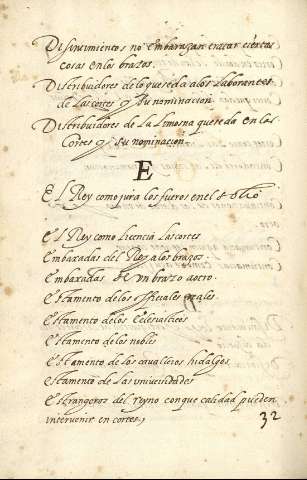 Disentimientos no embaraçan tratar ciertas
cosas en los brazos.
Distribuidores de lo que se da a los Laborantes
de Las cortes y su nominacion
Distribuidores de La Limosna que se da en las
Cortes y su nominacion
E
El Rey como jura los fueros en el
El Rey como Licencia Las cortes
Embaxadas del Rey a los brazos
Embaxadas de vn brazo a otro.
estamento de los officiales reales.
Estamento de los Eclesiasticos
estamento de los nobles
Estamento de los cavalleros hidalgos
estamento de Las universidades
Estrangeros del reyno con que calidad pueden
intervenir en cortes,
32